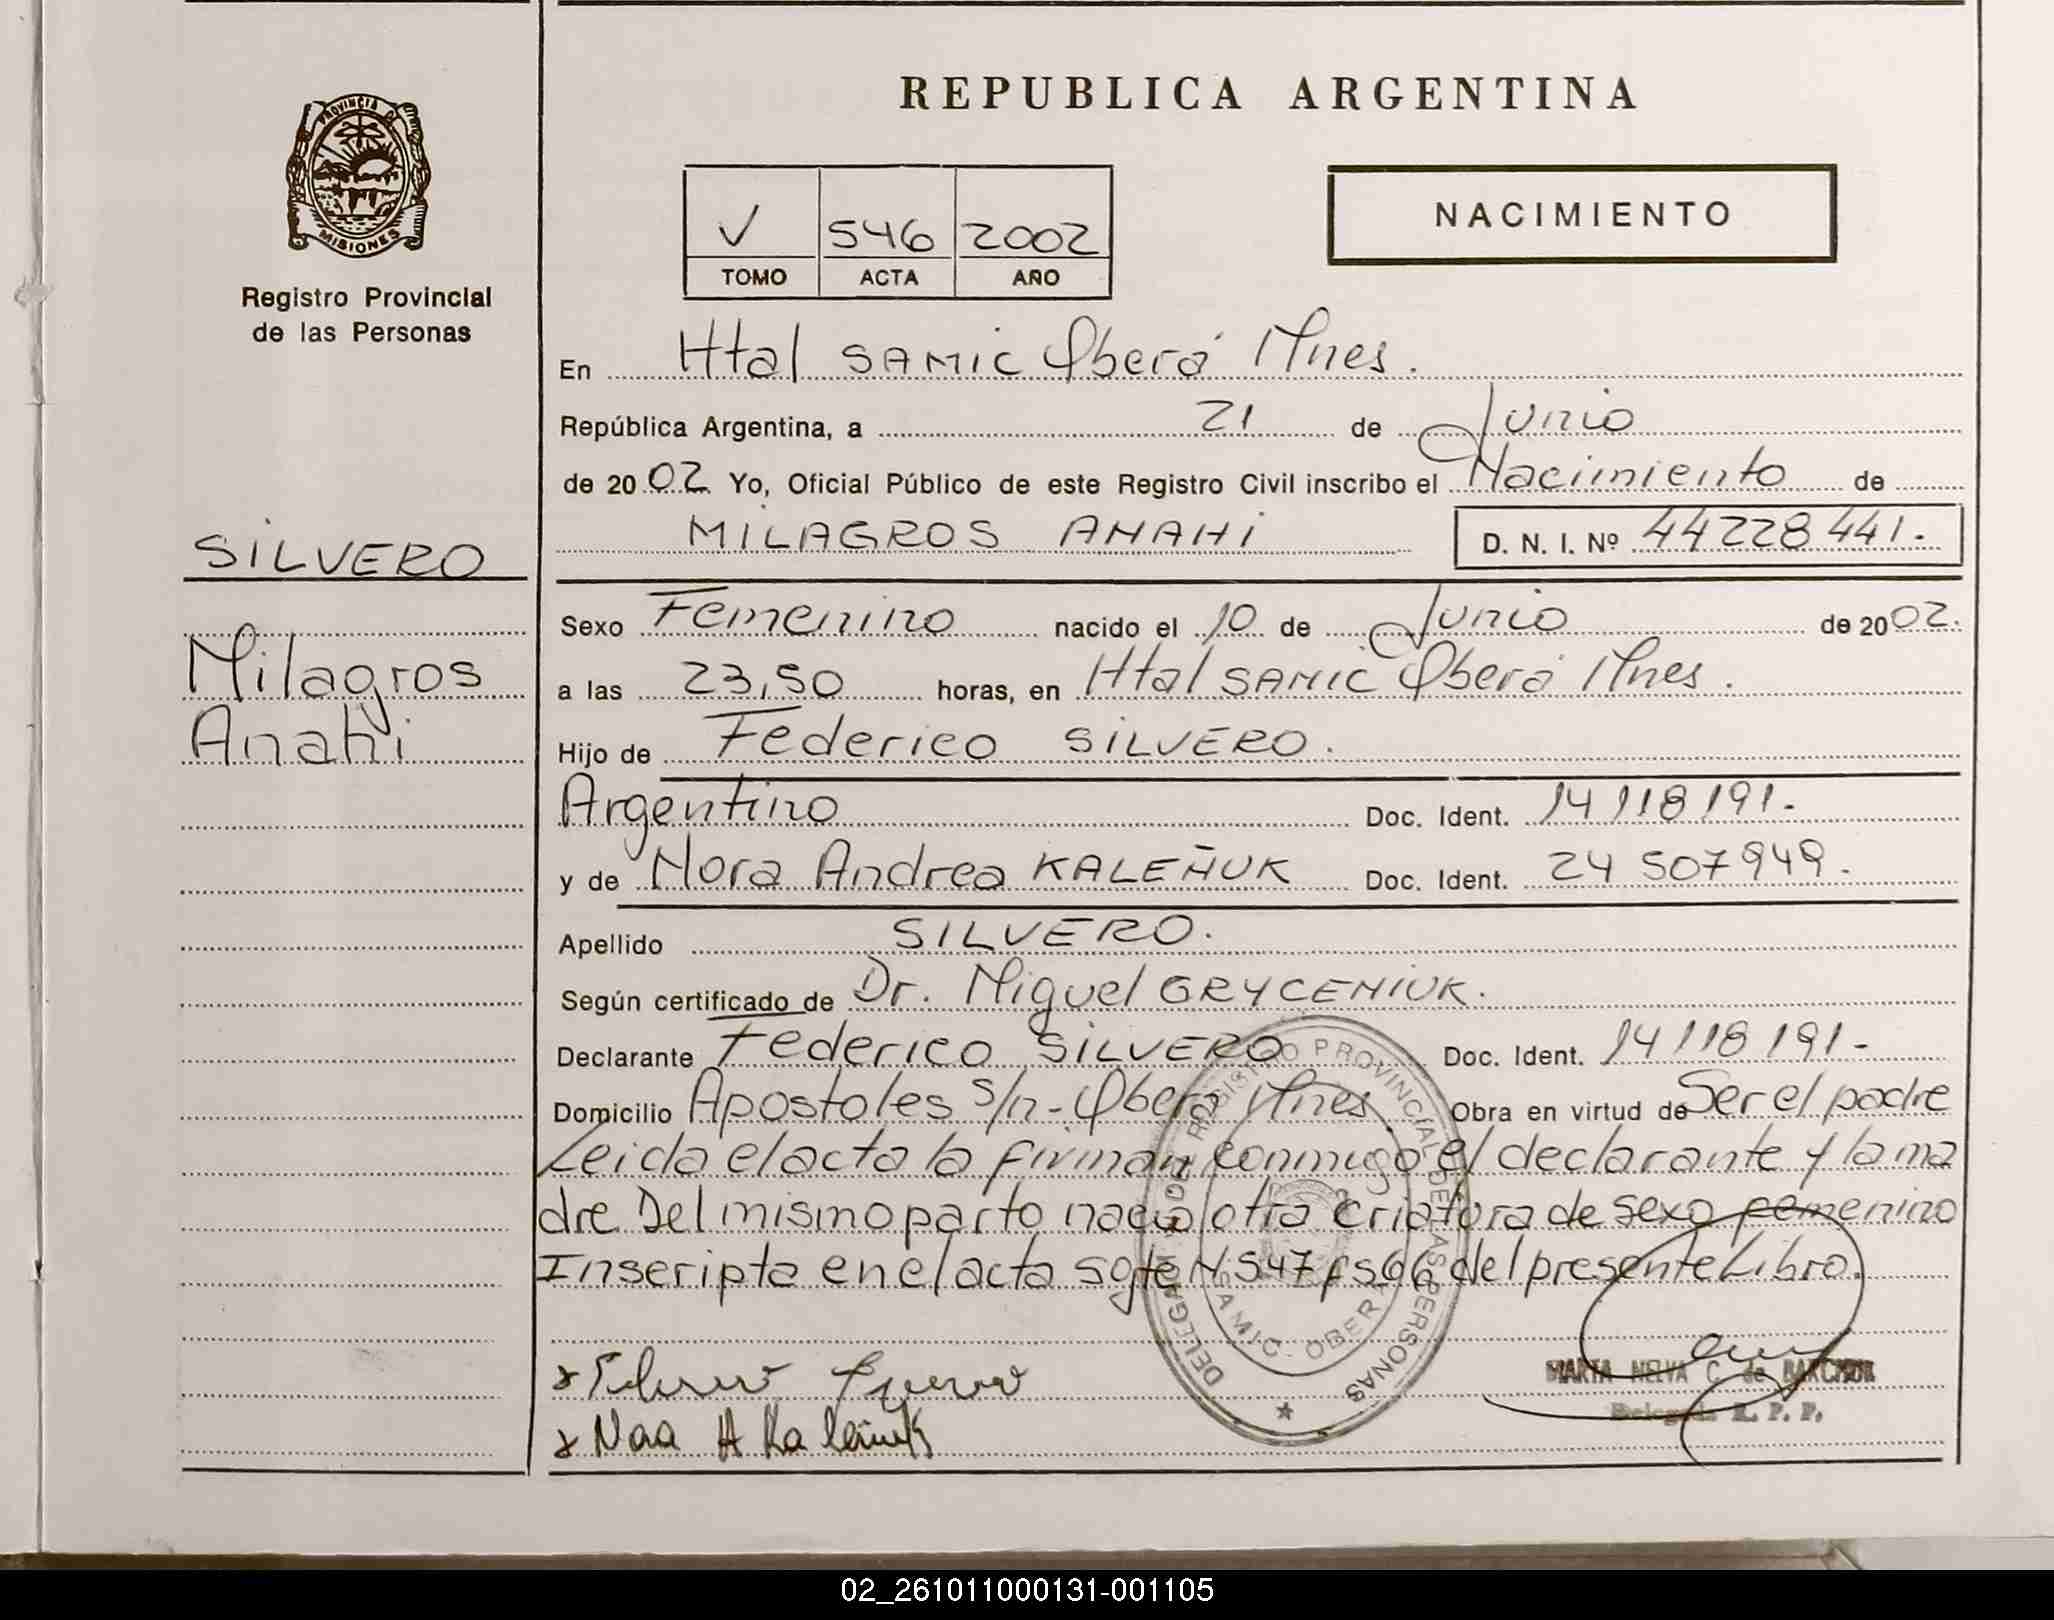 REPUBLICA ARGENTINA
PROVINCIA DE
MISIONES
Registro Provincial
de las Personas
V 546 2002
TOMO ACTA AÑO
NACIMIENTO
En Htal SAMIC Oberá Mnes.
República Argentina, a 21 de Junio
de 2002 Yo, Oficial Público de este Registro Civil inscribo el Nacimiento de
MILAGROS ANAHI D. N. I. Nº 44228441.
SILVERO
Milagros
Anahi
Sexo Femenino nacido el 10 de Junio de 2002.
a las 23,50 horas, en Htal SAMIC Oberá Mnes.
Hijo de Federico SILVERO.
Argentino Doc. Ident. 14118191.-
y de Nora Andrea KALEÑUK Doc. Ident. 24507949.
Apellido SILVERO.
Según certificado de Dr. Miguel GRYCENIUK.
Declarante Federico SILVERO Doc. Ident. 14118191-
Domicilio Apostoles s/n - Oberá Mnes. Obra en virtud de Ser el padre
Leida el acta la firman conmigo el declarante y la ma
dre Del mismo parto nacio otra criatura de sexo femenino
Inscripta en el acta sgte N 547 fs 66 del presente Libro.
DELEGACION DEL REGISTRO PROVINCIAL DE LAS PERSONAS
SAMIC - OBERA
x Silvero
x Nora A Kaleñuk
MARTA NELVA C. de
Delegada R. P. P.
02_261011000131-001105